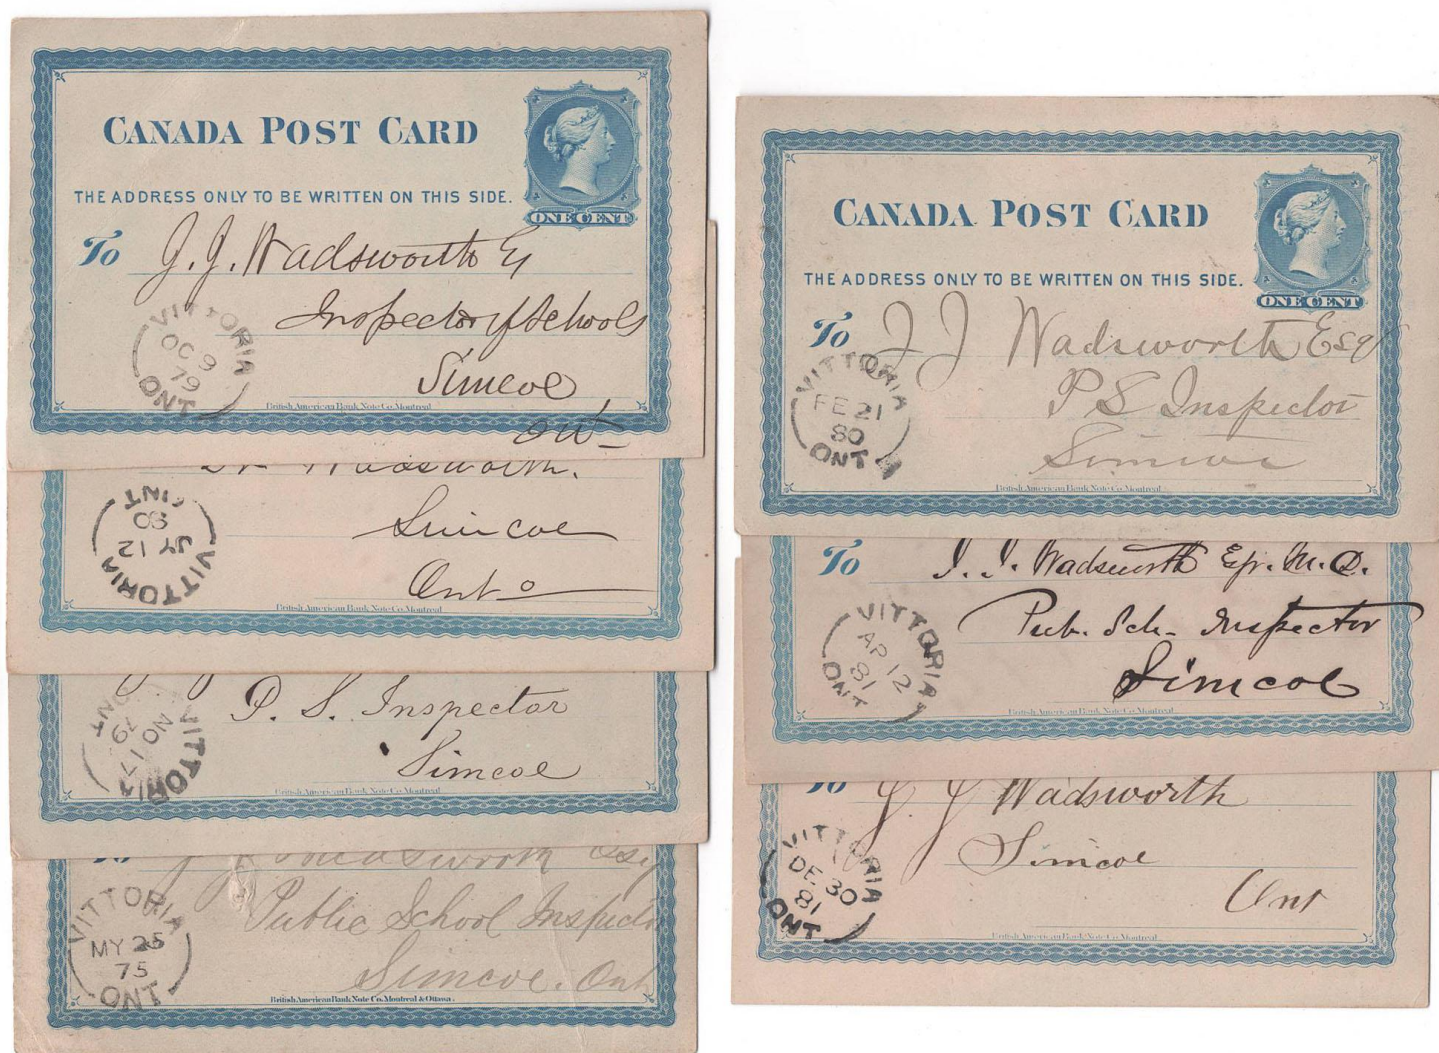 CANADA POST CARD
ONE CENT
THE ADDRESS ONLY TO BE WRITTEN ON THIS SIDE.
To J. J. Wadsworth
Inspector of Schools
Simcoe
Ont
VITTORIA
OC 9
79
ONT
British American Bank Note Co. Montreal
Dr Wadsworth.
Simcoe
Ont
VITTORIA
JY 12
80
ONT
British American Bank Note Co. Montreal
P. S. Inspector
Simcoe
VITTORIA
NO 17
79
ONT
British American Bank Note Co. Montreal
To J. J. Wadsworth Esq
Public School Inspector
Simcoe. Ont
VITTORIA
MY 25
75
ONT
British American Bank Note Co. Montreal & Ottawa.
CANADA POST CARD
ONE CENT
THE ADDRESS ONLY TO BE WRITTEN ON THIS SIDE.
To J J Wadsworth Esq
P S Inspector
Simcoe
VITTORIA
FE 21
80
ONT
British American Bank Note Co. Montreal
To J. J. Wadsworth M.D.
Pub. Sch. Inspector
Simcoe
VITTORIA
AP 12
81
ONT
British American Bank Note Co. Montreal
To J J Wadsworth
Simcoe
Ont
VITTORIA
DE 30
81
ONT
British American Bank Note Co. Montreal